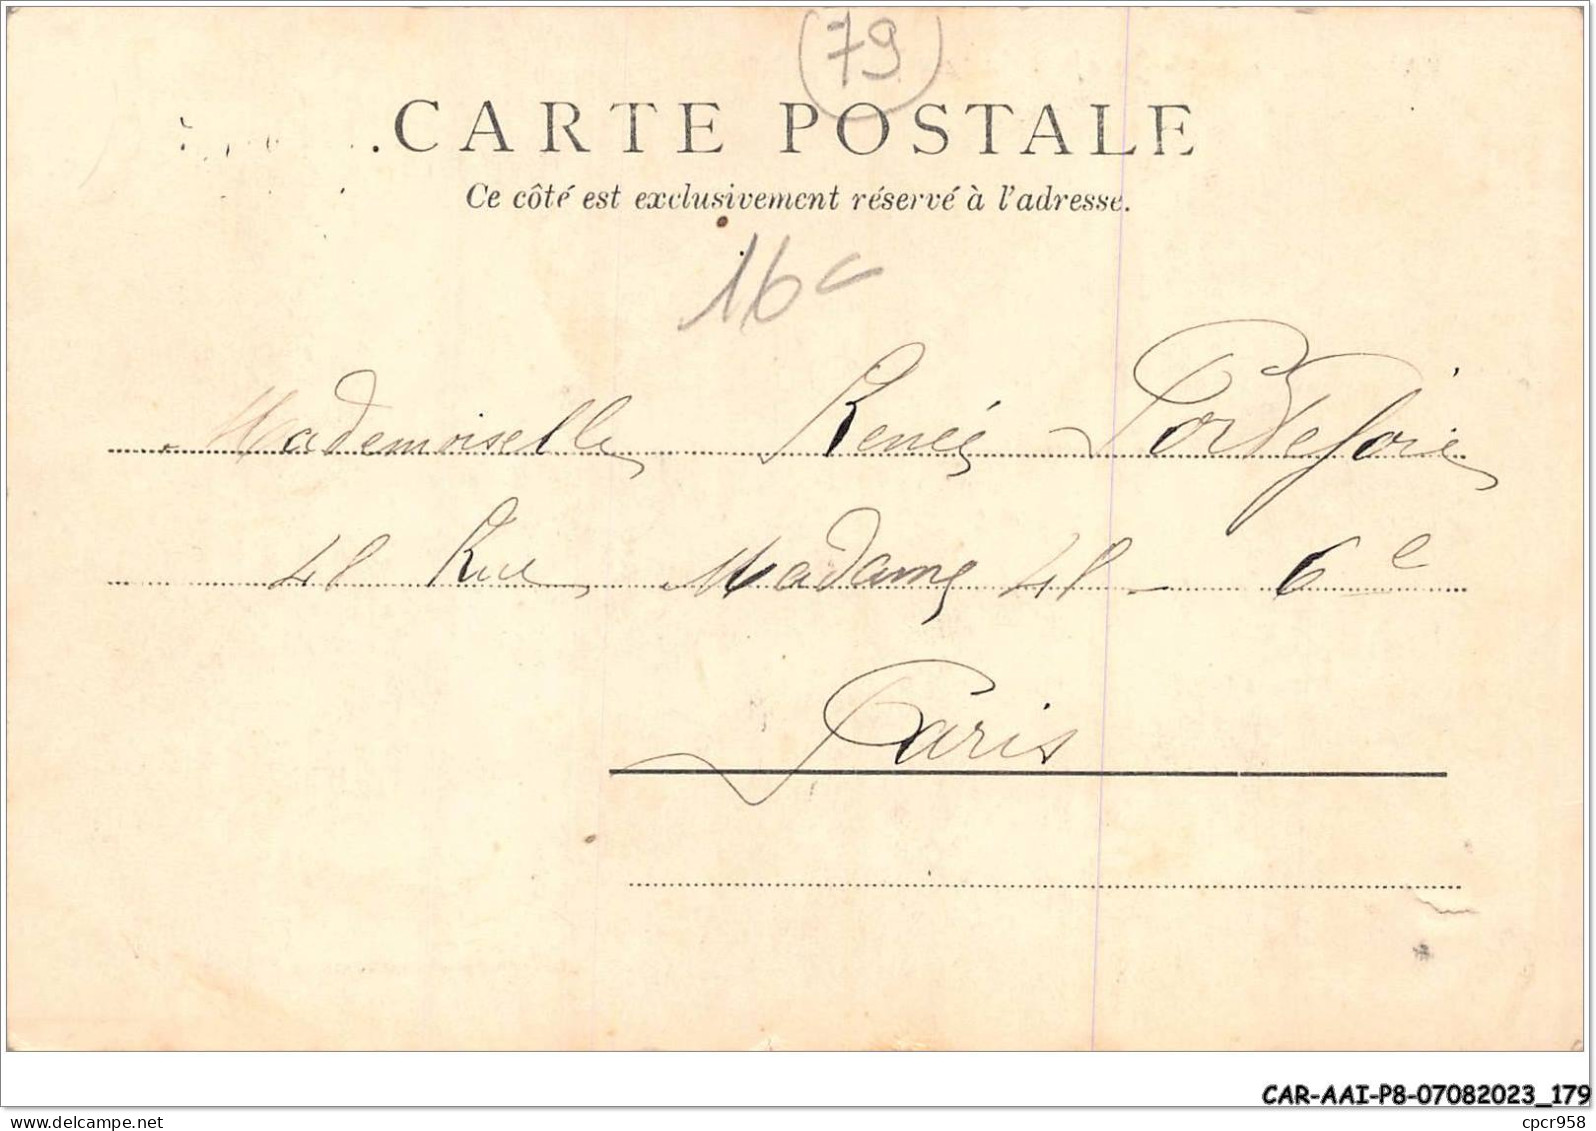 (79)
CARTE POSTALE
Ce côté est exclusivement réservé à l'adresse.
16c
Mademoiselle Renée Portefoie
48 Rue Madame 48 - 6e
Paris
CAR-AAI-P8-07082023_179
delcampe.net
cpcr958